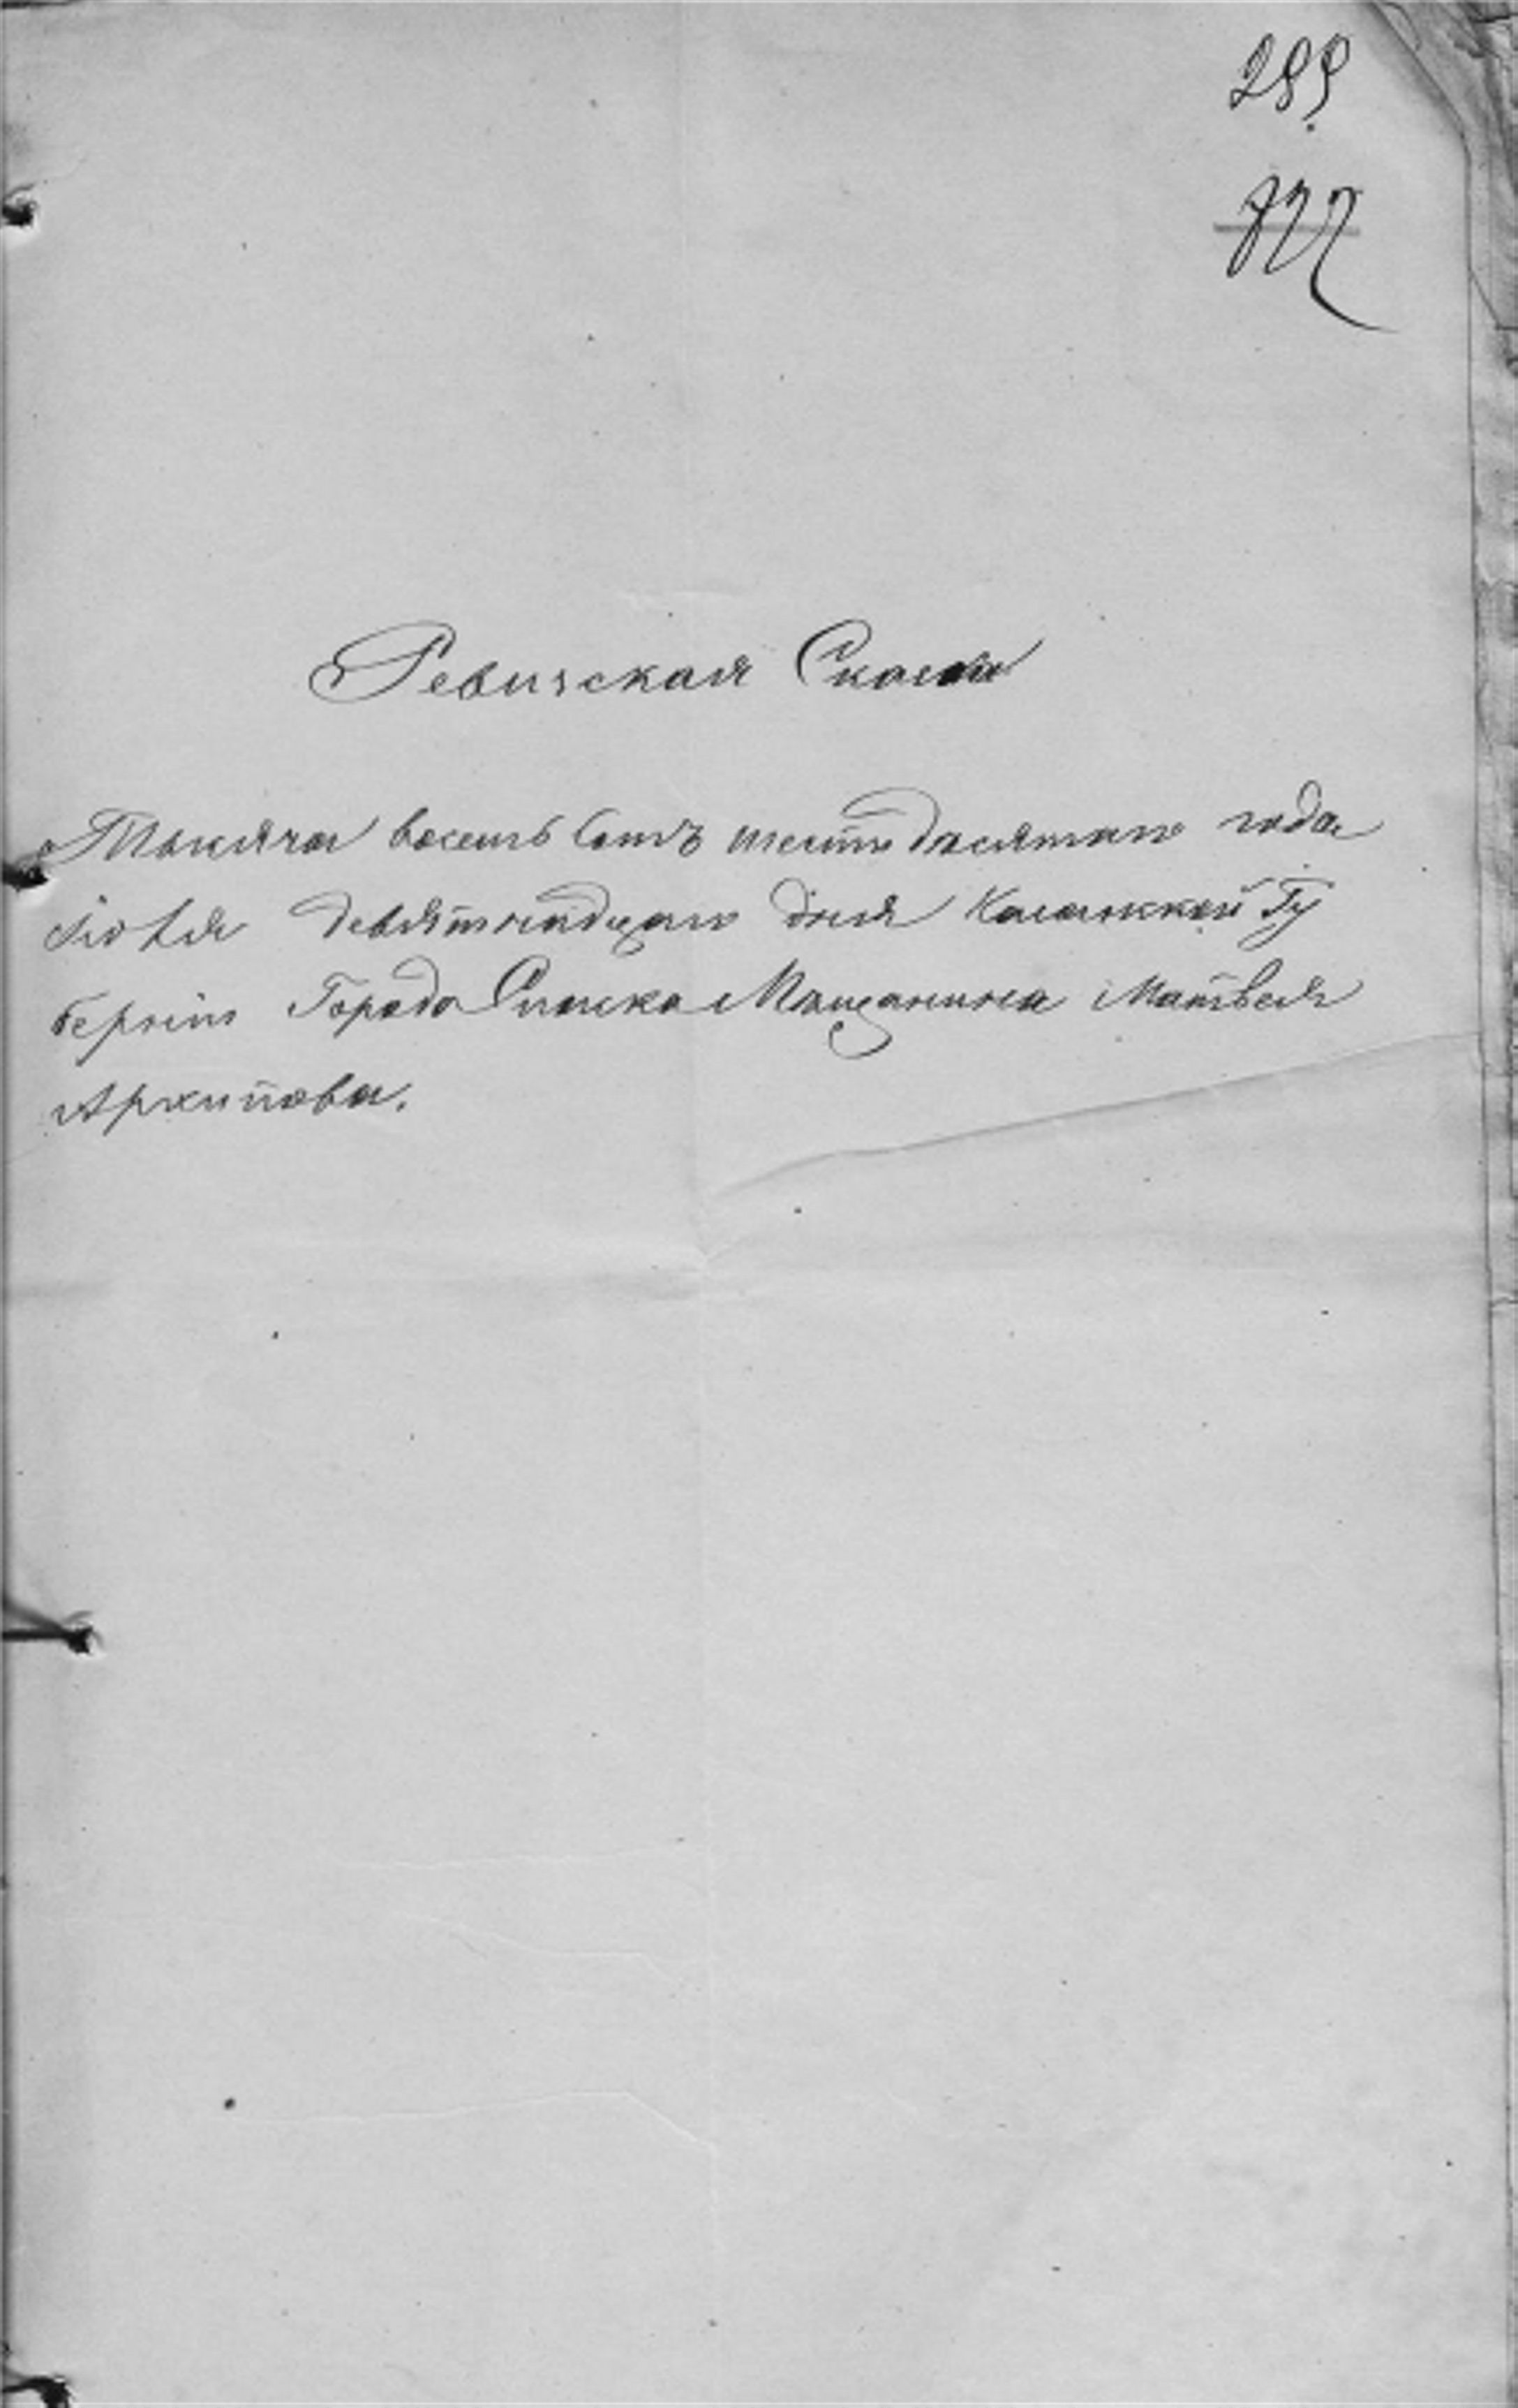 289.
722
Ревизская Сказка
Тысяча восемь Сотъ шестьдесятаго года
Iюля девятнадцаго дня Казанской Гу
бернiи Города Спаска Мещанина Матвея
Архипова.